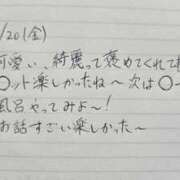 /20(金)
可愛い、綺麗って褒めてくれて
〇ット楽しかったね〜 次は〇ー
風呂やってみよ〜!
お話すごい楽しかった〜